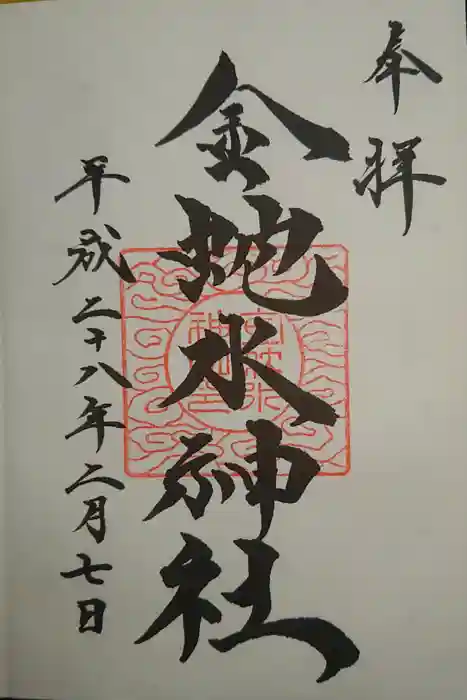 奉拝
金蛇水神社
平成二十八年二月七日